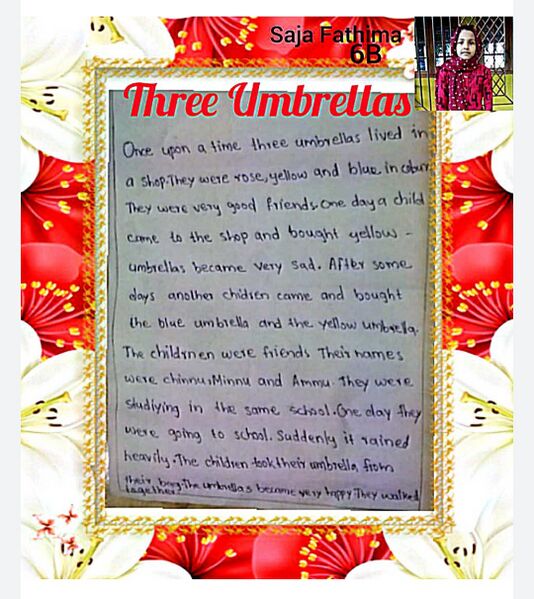 Saja Fathima
6B
Three Umbrellas
Once upon a time three umbrellas lived in
a shop.They were rose,yellow and blue in colour
They were very good friends.One day a child
came to the shop and bought yellow -
umbrellas became very sad. After some
days another chidren came and bought
the blue umbrella and the yellow umbrella.
The childrnen were friends Their names
were chinnu,Minnu and Ammu. They were
studiying in the same school.One day they
were going to school. Suddenly it rained
heavily.The children took their umbrella from
their beg.The umbrellas became very happy They walked
together